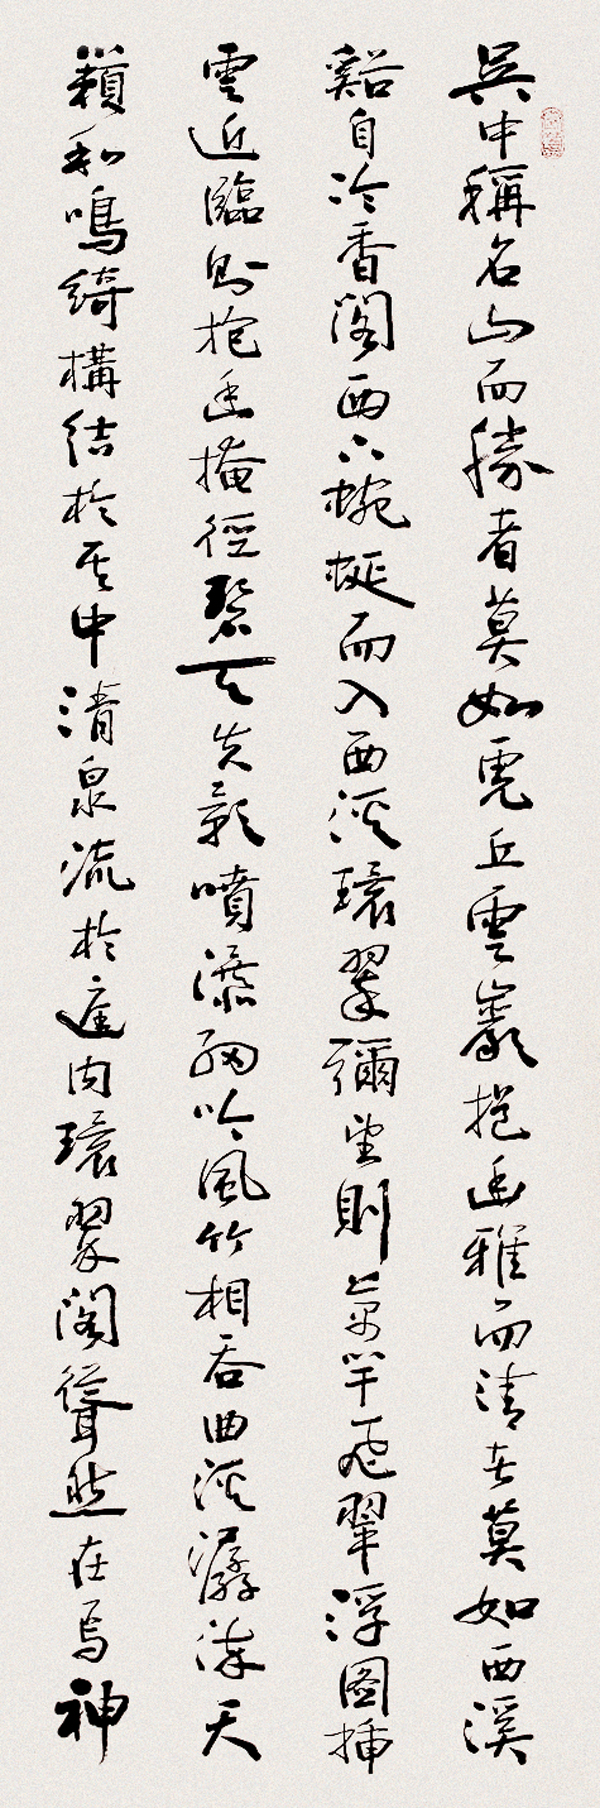 吳中稱名山而勝者莫如虎丘雲巖挹幽雅而清者莫如西溪
谿自冷香閣西下蜿蜒而入西溪環翠彌望則萬竿飛翠浮圖插
雲近臨則抱幽掩徑碧天失影噴瀑細吟風竹相吞曲溪潺湲天
籟和鳴綺構結於其中清泉流於庭內環翠閣聳然在焉神